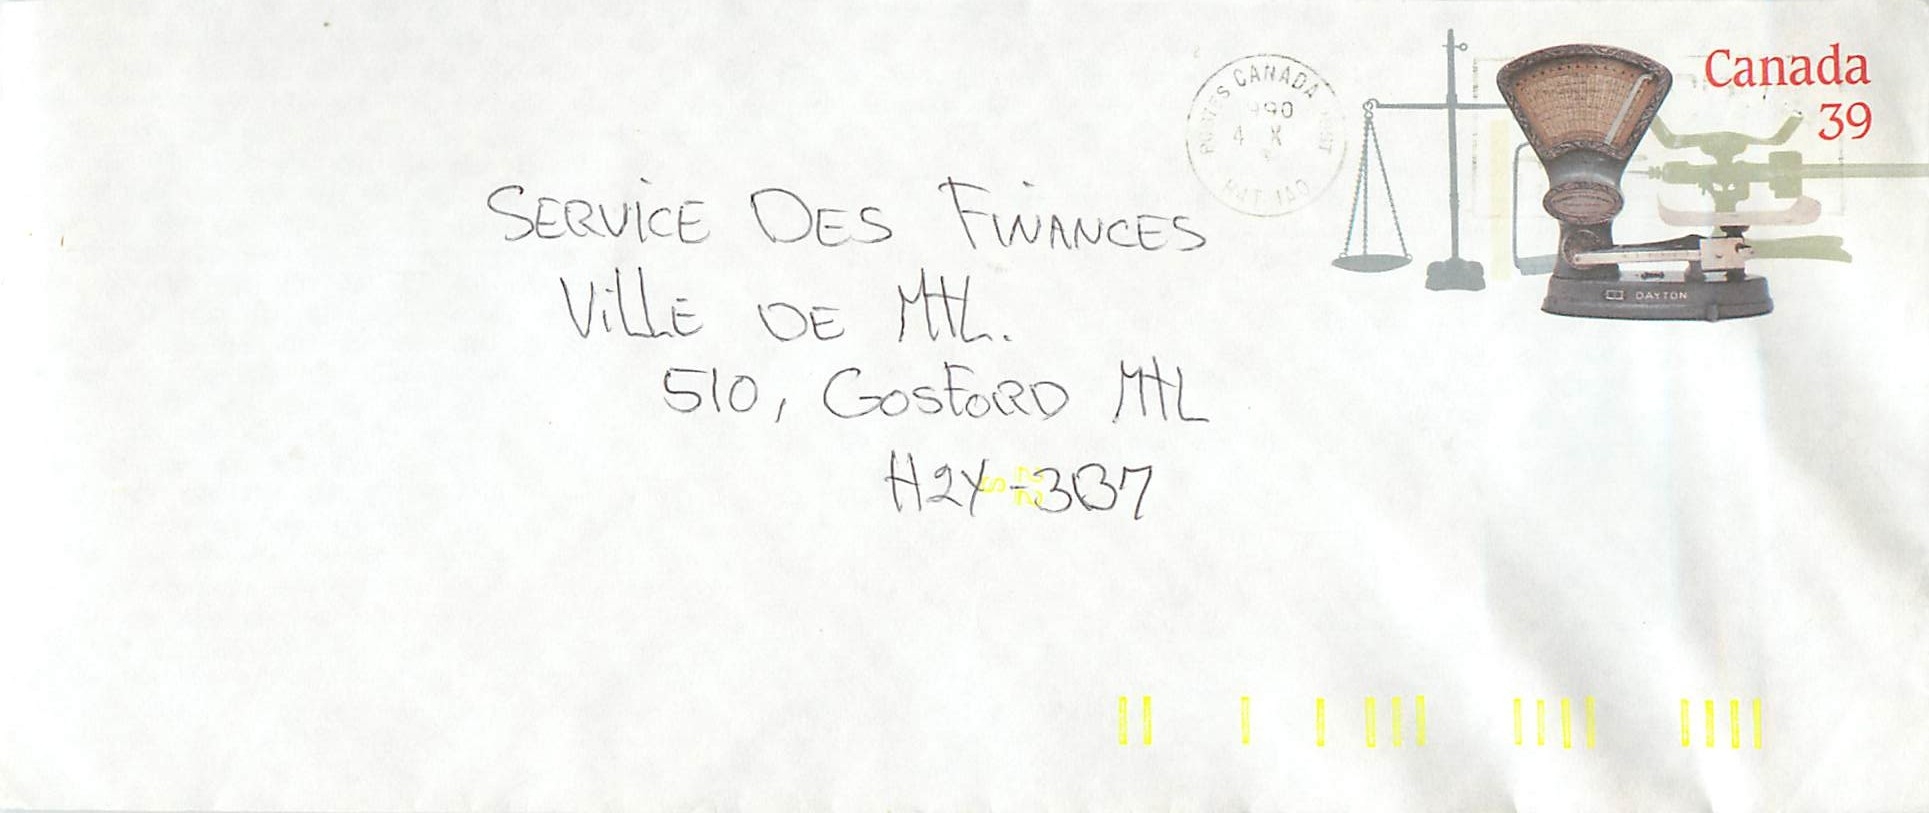 Canada
39
POSTES CANADA POST
1990
4 X
SERVICE DES FINANCES
VILLE DE MTL.
510, GOSFORD MTL
H2Y-3B7
DAYTON